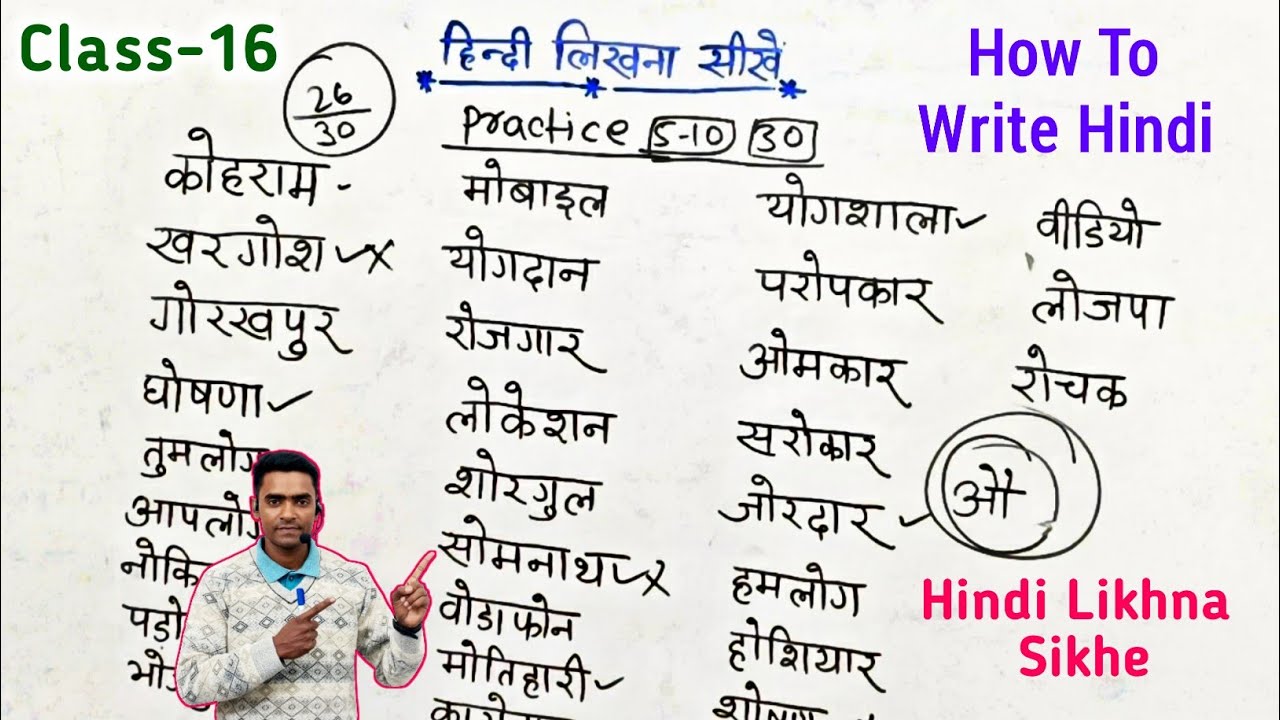 Class-16
हिन्दी लिखना सीखें
How To
Write Hindi
26
30
Practice 5-10 30
कोहराम
खरगोश
गोरखपुर
घोषणा
तुमलोग
मोबाइल
योगदान
रोजगार
लोकेशन
शोरगुल
सोमनाथ
वोडाफोन
मोतिहारी
योगशाला
परोपकार
ओमकार
सरोकार
जोरदार
हमलोग
होशियार
शोषण
वीडियो
लोजपा
रोचक
औ
Hindi Likhna
Sikhe